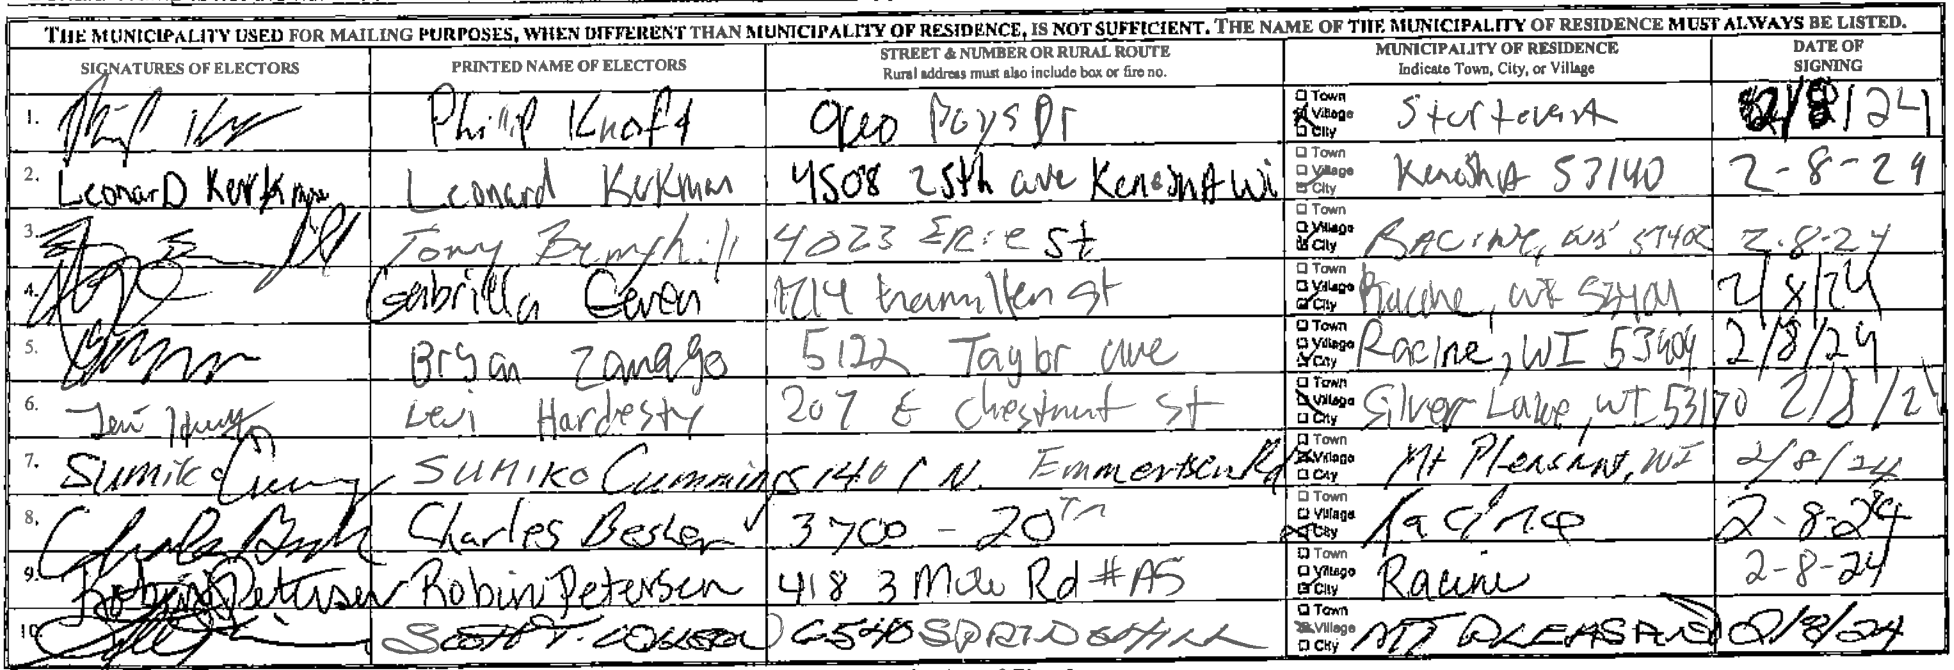 THE MUNICIPALITY USED FOR MAILING PURPOSES, WHEN DIFFERENT THAN MUNICIPALITY OF RESIDENCE, IS NOT SUFFICIENT. THE NAME OF THE MUNICIPALITY OF RESIDENCE MUST ALWAYS BE LISTED.
SIGNATURES OF ELECTORS PRINTED NAME OF ELECTORS STREET & NUMBER OR RURAL ROUTE MUNICIPALITY OF RESIDENCE DATE OF
Rural address must also include box or fire no. Indicate Town, City, or Village SIGNING
1. Phillip Dr Town Village City 2/8/24
2. Leonard Leonard Kerkman 4508 25th ave Kenosha Wi Town Village City Kenosha 53140 2-8-24
3. Tony 4023 Erie St Town Village City Racine, WI 53402 2-8-24
4. Gabriella 1714 st Town Village City Racine, WI 2/8/24
5. Bryan 5122 Taylor ave Town Village City Racine, WI 53404 2/8/24
6. Levi Hardesty 207 E Chestnut St Town Village City Silver Lake, WI 53170 2/8/2
7. Sumiko SUMIKO Cummings 1401 N. Emmertsen Rd Town Village City Mt Pleasant, WI 2/8/24
8. Charles 3700 - 20th Town Village City Racine 2-8-24
9. Robin Petersen Robin Petersen 418 3 Mile Rd #A5 Town Village City Racine 2-8-24
10. SCOTT T. 6540 Town Village City MT PLEASANT 2/8/24